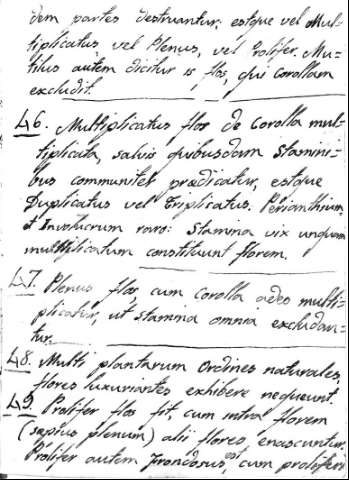 dem partes destruantur: estque vel Mul-
tiplicatus, vel Plenus, vel Prolifer. Mu-
tilus autem dicitur is flos, qui Corollam
excludit.
46. Multiplicatus flos de Corolla mul-
tiplicata, salvis quibusdam Stamini-
bus communiter prædicatur, estque
Duplicatus vel Triplicatus. Perianthium,
et Involucrum raro: Stamina vix unquam
multiplicatum constituunt florem.
47. Plenus flos, cum Corolla adeo multi-
plicatur, ut Stamina omnia excludan-
tur.
48. Multi plantarum Ordines naturales,
flores luxuriantes exhibere nequeunt.
49. Prolifer flos fit, cum intra florem
(sæpius plenum) alii flores enascuntur.
Prolifer autem frondosus est, cum prolifero